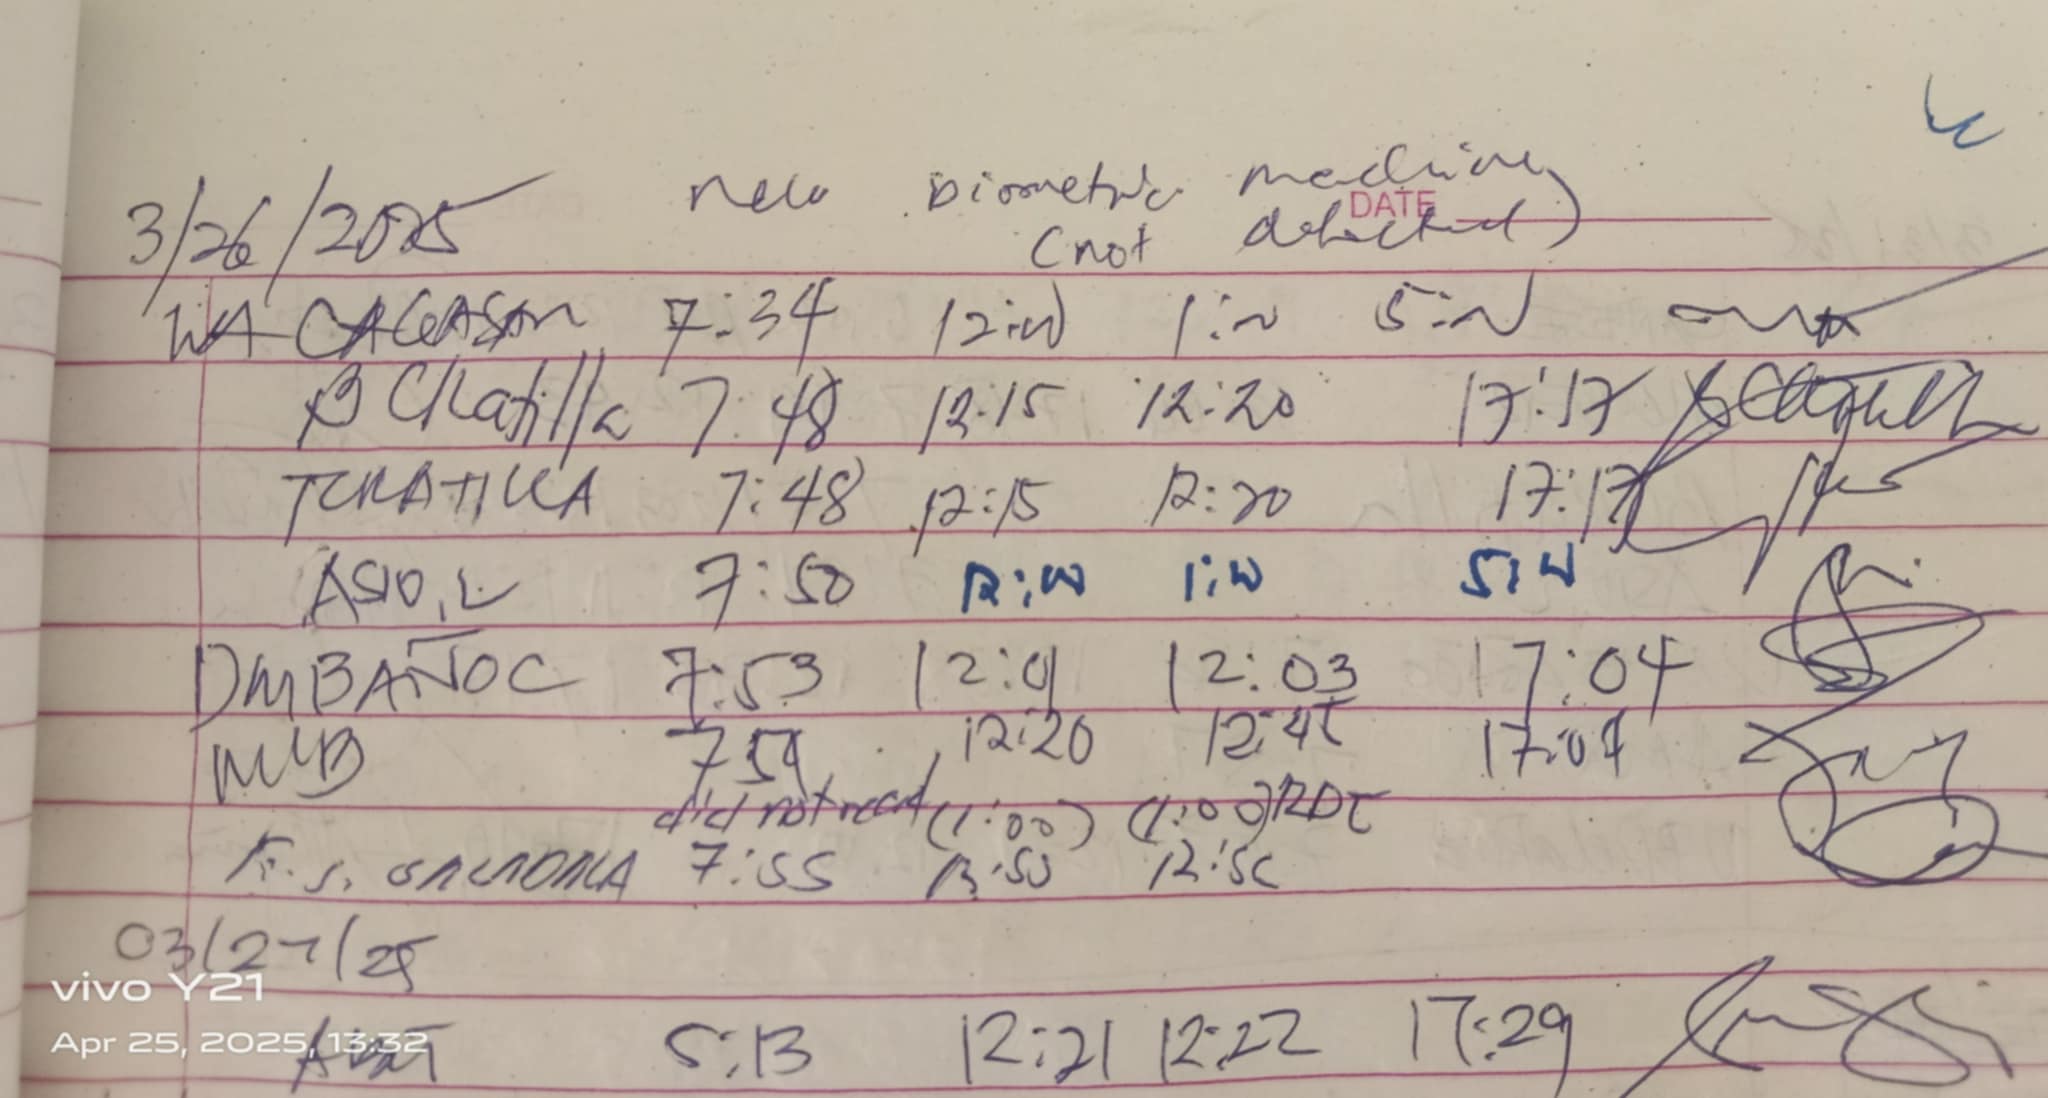 3/26/2025 new Biometric machine
(not detected)
DATE
7:34 12:00 1:00 5:00
B CRatilla 7:48 12:15 12:20 17:17
TCRATILLA 7:48 12:15 12:20 17:17
ASIO, L 7:50 12:00 1:00 5:00
DMBAÑOC 7:53 12:01 12:03 17:04
7:59 12:20 12:45 17:09
did not read (1:00) (1:00)
7:55 12:50
03/27/25
5:13 12:21 12:22 17:29
vivo Y21
Apr 25, 2025, 13:32